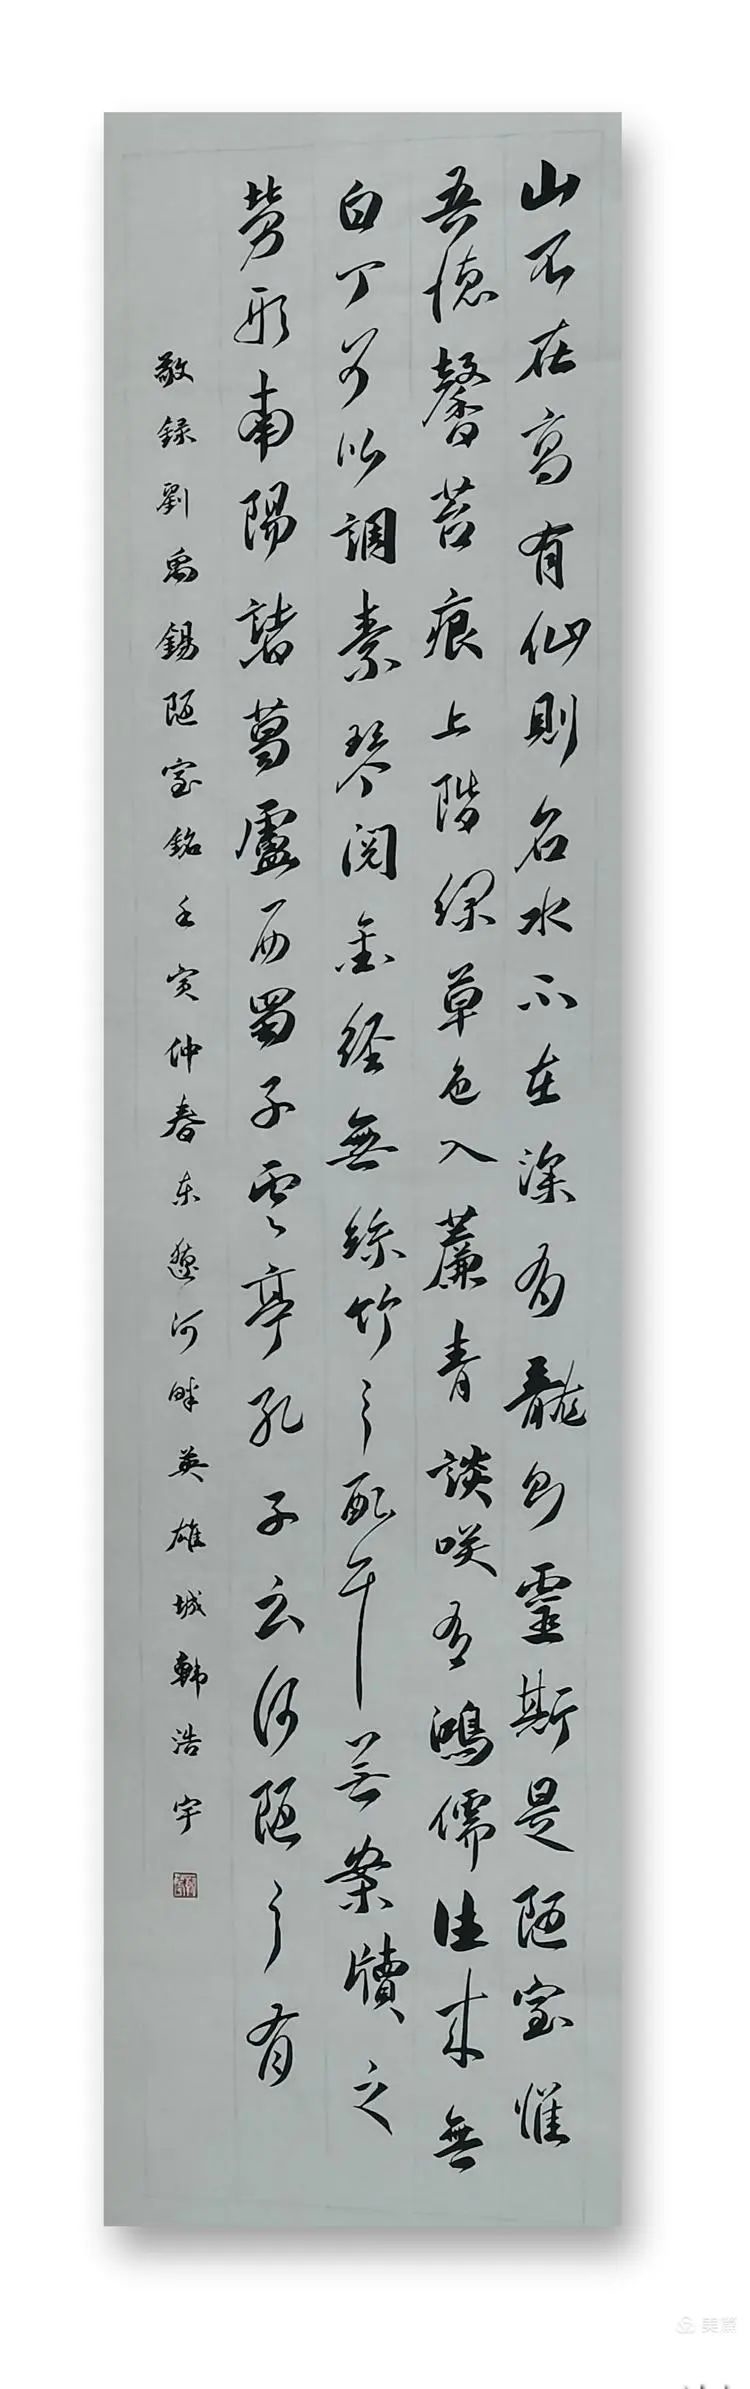 山不在高有仙則名水不在深有龍則靈斯是陋室惟
吾德馨苔痕上階緑草色入簾青談咲有鴻儒往来無
白丁可以調素琴閱金經無絲竹之亂耳無案牘之
勞形南陽諸葛廬西蜀子雲亭孔子云何陋之有
敬録劉禹錫陋室銘壬寅仲春东遼河畔英雄城韩浩宇
美篇